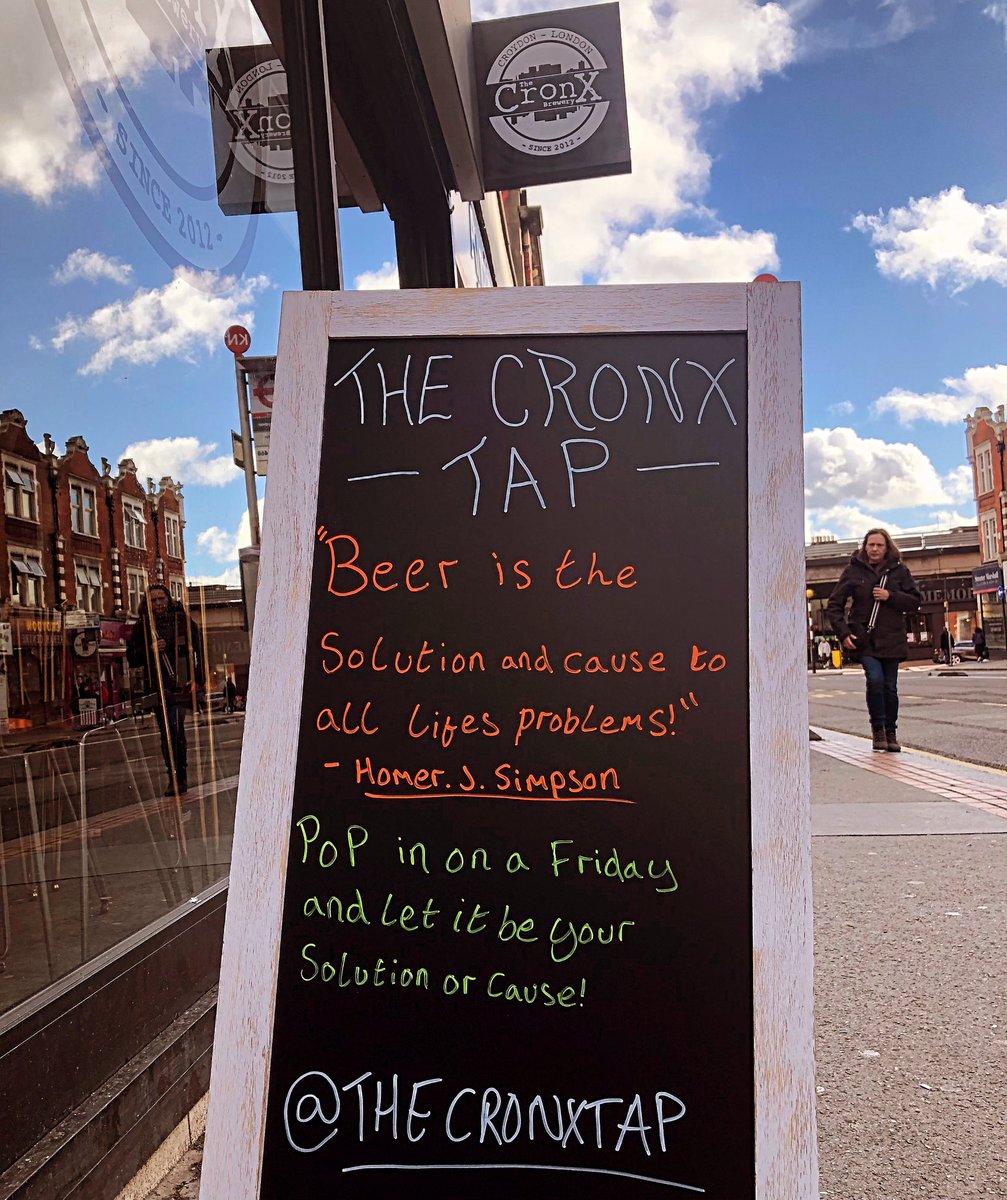 CROYDON - LONDON
The
CronX
Brewery
- SINCE 2012 -
SINCE 2012 -
KN
THE CRONX
- TAP -
"Beer is the
Solution and cause to
all lifes problems!"
- Homer. J. Simpson
Pop in on a Friday
and let it be your
Solution or Cause!
@THECRONXTAP